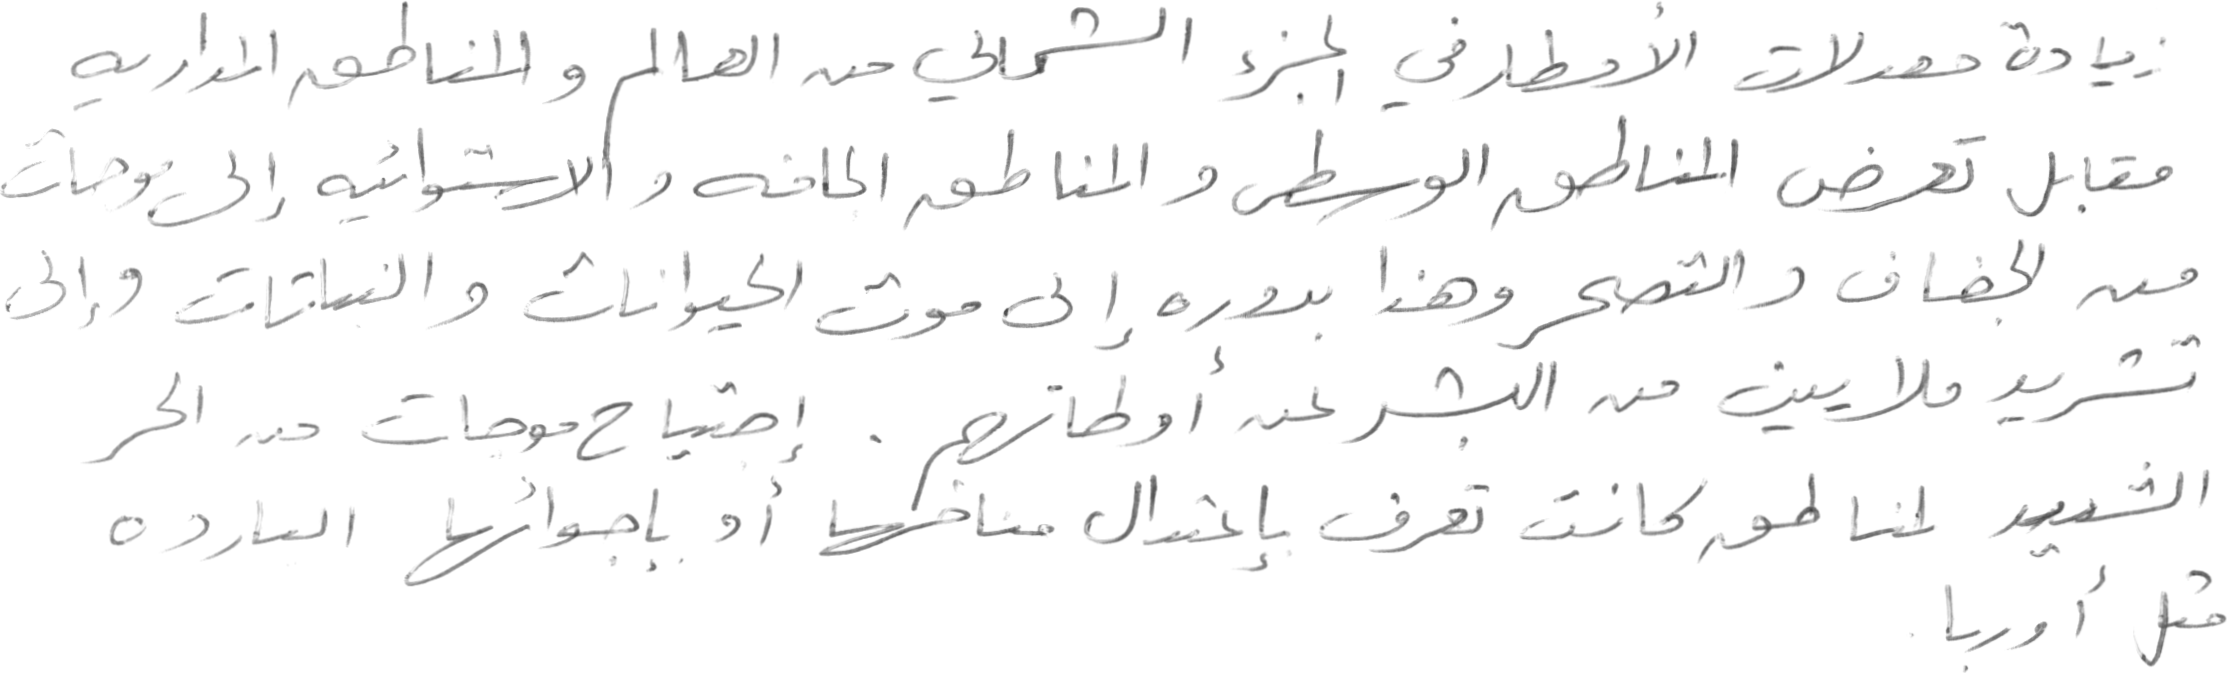 زيادة معدلات الأمطار في الجزء الشمالي من العالم و المناطق المداريه
مقابل تعرض المناطق الوسطى و المناطق الجافه و الاستوائيه إلى موجات
من الجفاف و التصحر وهذا بدوره إلى موت الحيوانات و النباتات وإلى
تشريد ملايين من البشر عن أوطانهم . إجتياح موجات من الحر
الشديد لمناطق كانت تعرف بإعتدال مناخها أو بإجوائها البارده
مثل أوربا .